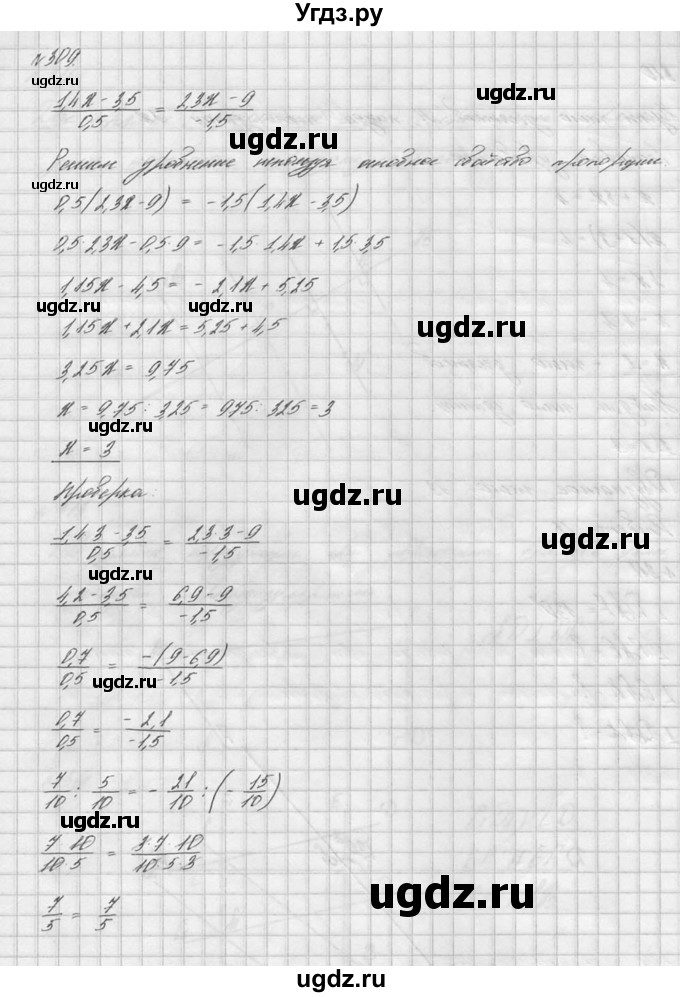 Угдз.ру
№309.
ugdz.ru
(1,4x - 3,5)/0,5 = (2,3x - 9)/-1,5
ugdz.ru
ugdz.ru
Решим уравнение используя основное свойство пропорции.
ugdz.ru
0,5(2,3x-9) = -1,5(1,4x - 3,5)
0,5·2,3x - 0,5·9 = -1,5·1,4x + 1,5·3,5
1,15x - 4,5 = - 2,1x + 5,25
ugdz.ru
ugdz.ru
1,15x + 2,1x = 5,25 + 4,5
ugdz.ru
3,25x = 9,75
x = 9,75 : 3,25 = 975 : 325 = 3
x = 3
ugdz.ru
Проверка:
ugdz.ru
(1,4·3 - 3,5)/0,5 = (2,3·3 - 9)/-1,5
ugdz.ru
ugdz.ru
(4,2 - 3,5)/0,5 = (6,9 - 9)/-1,5
ugdz.ru
0,7/0,5 = -(9-6,9)/-1,5
ugdz.ru
0,7/0,5 = -2,1/-1,5
7/10 : 5/10 = - 21/10 : (- 15/10)
ugdz.ru
ugdz.ru
7·10/10·5 = 3·7·10/10·5·3
ugdz.ru
7/5 = 7/5
ugdz.ru